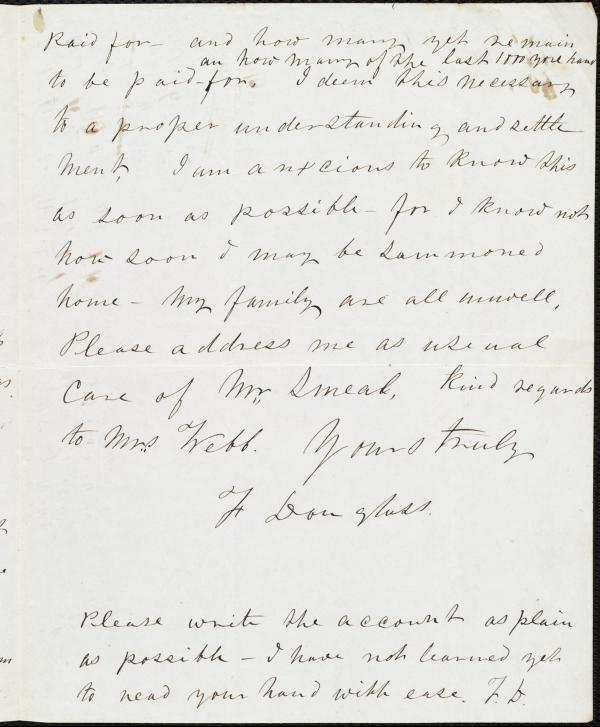 Paid for – and how many yet remain
an how many of the last 1000 you have
to be paid for. I deem this necessary
to a proper understanding and settle
ment. I am anxcious to know this
as soon as possible – for I know not
how soon I may be summoned
home – My family are all unwell.
Please address me as useual
Care of Mr. Smeal. Kind regards
to Mrs Webb. Yours truly
F Douglass.
Please write the account as plain
as possible – I have not learned yet
to read your hand with ease. F.D.